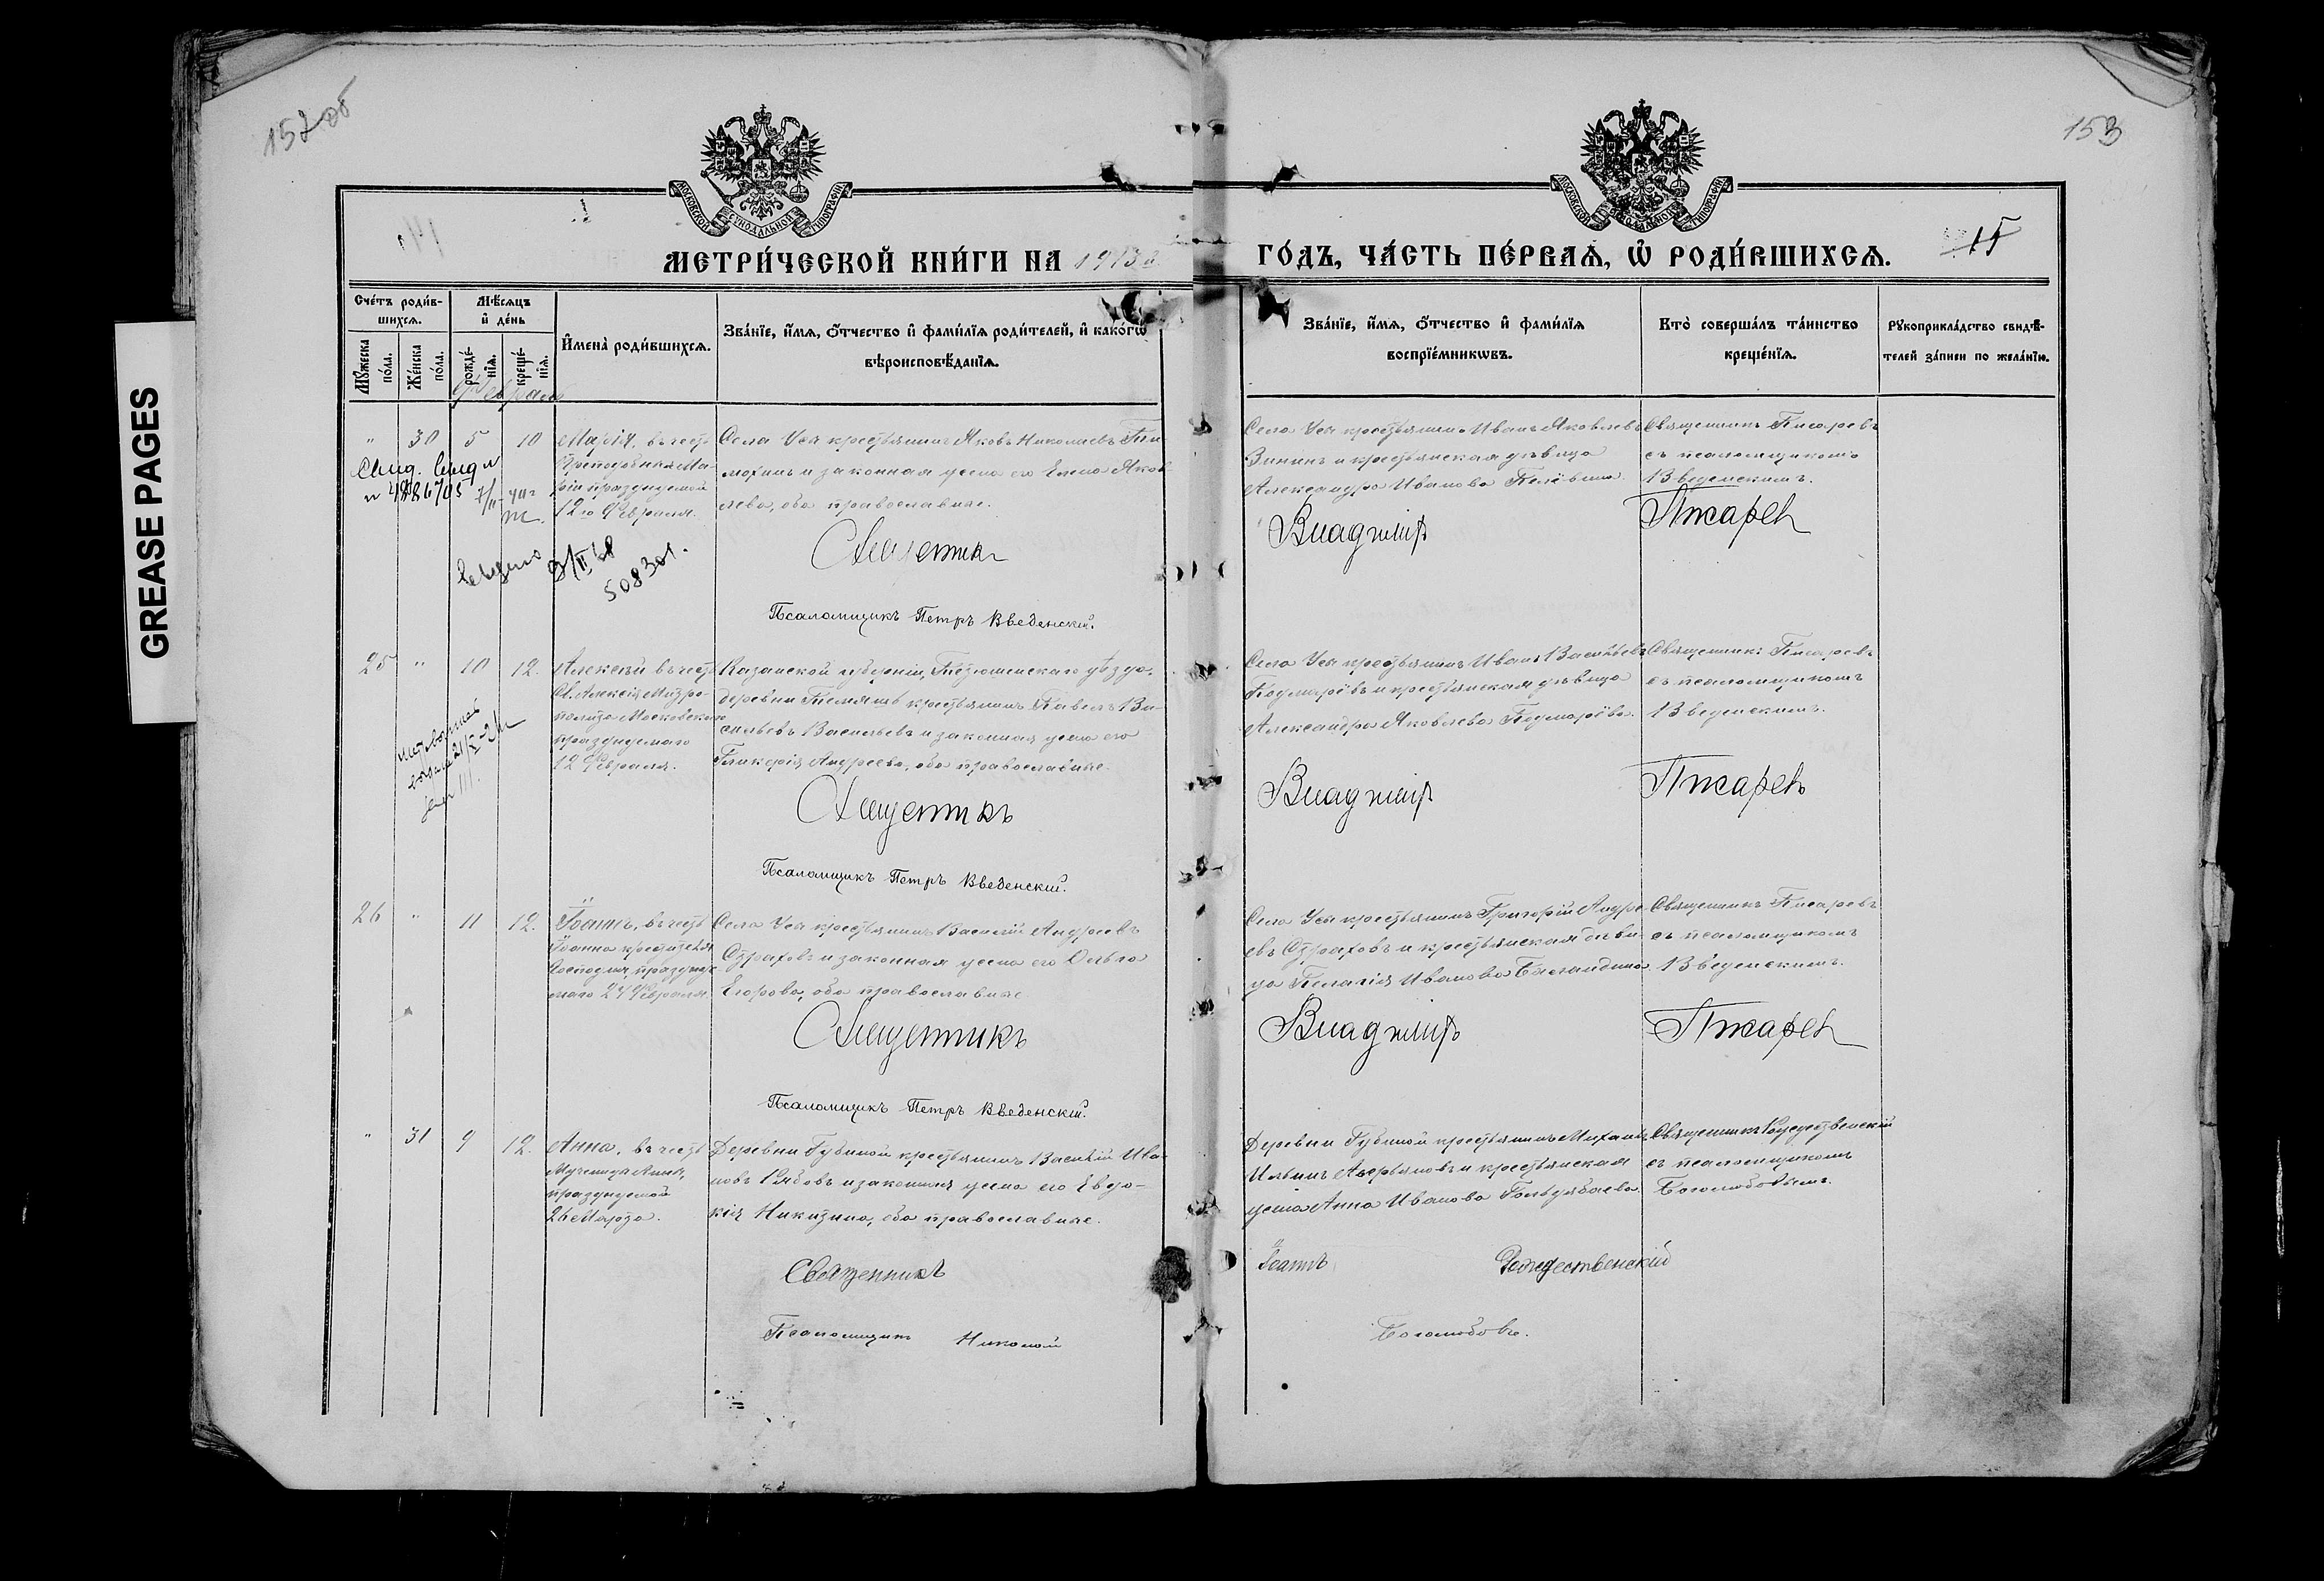 152 об
153
МОСКОВСКОЙ СѴНОДАЛЬНОЙ ТИПОГРАФІИ
МОСКОВСКОЙ СѴНОДАЛЬНОЙ ТИПОГРАФІИ
МЕТРИ́ЧЕСКОЙ КНИ́ГИ НА 1913 й
ГО́ДЪ, ЧА́СТЬ ПЕ́РВАѦ, Ѡ҆ РОДИ́ВШИХСѦ.
15
Сче́тъ роди́в-
шихсѧ.
Мѣ́сѧцъ
и҆ де́нь
Мꙋ́жеска
по́ла.
Же́нска
по́ла.
рожде́-
нїѧ.
креще́-
нїѧ.
И҆мена̀ роди́вшихсѧ.
Зва́нїе, и҆́мѧ, ѻ҆́тчество и҆ фами́лїѧ роди́телей, и҆ како́гѡ
вѣроисповѣ́данїѧ.
Зва́нїе, и҆́мѧ, ѻ҆́тчество и҆ фами́лїѧ
воспрїе́мникѡвъ.
Кто̀ соверша́лъ та́инство
креще́нїѧ.
Рꙋкоприкла́дство свидѣ́-
телей за́писи по жела́нїю.
Февраль
" 30 5 10
Марія, въ честь
Преподобныя Ма-
ріи празднуемой
12го Февраля.
Села Усы крестьянинъ Яковъ Николаевъ
и законная жена его Елена Яков
лева, оба православные.
Священникъ
Псаломщикъ Петръ Введенскій.
Села Усы крестьянинъ Иванъ Яковлевъ
Зининъ и крестьянская дѣвица
Александра Иванова
Владиміръ
Священникъ Писаревъ
съ псаломщикомъ
Введенскимъ.
Писаревъ
508301.
25 " 10 12.
Алексѣй въ честь
Св. Алексія Митро-
полита Московскаго
празднуемаго
12 Февраля.
Казанской губерніи, Тетюшскаго уѣзда,
деревни крестьянинъ Павелъ Ва-
сильевъ Васильевъ и законная жена его
Гликерія Андреева, оба православные.
Священникъ
Псаломщикъ Петръ Введенскій.
Села Усы крестьянинъ Иванъ Васильевъ
и крестьянская дѣвица
Александра Яковлева
Владиміръ
Священникъ Писаревъ
съ псаломщикомъ
Введенскимъ.
Писаревъ
26 " 11 12.
Іоаннъ, въ честь
Іоанна крестителя
Господня, праздну-
емаго 24 Февраля.
Села Усы крестьянинъ Василій Андреевъ
Страховъ и законная жена его Ольга
Егорова, оба православные
Священникъ
Псаломщикъ Петръ Введенскій.
Села Усы крестьянинъ Григорій Андре
евъ Страховъ и крестьянская дѣви-
ца Пелагія Иванова
Владиміръ
Священникъ Писаревъ
съ псаломщикомъ
Введенскимъ.
Писаревъ
" 31 9 12.
Анна, въ честь
Мученицы Анны,
празднуемой
26 Марта.
Деревни Губиной крестьянинъ Василій Ива
новъ Рябовъ и законная жена его Евдо-
кія Никитина, оба православные.
Священникъ
Псаломщикъ Николай
Деревни Губиной крестьянинъ Михаилъ
Ильинъ Аверьяновъ и крестьянская
жена Анна Иванова
Іоаннъ Рождественскій
Боголюбовъ.
Священникъ Рождественскій
съ псаломщикомъ
Боголюбовымъ.
GREASE PAGES